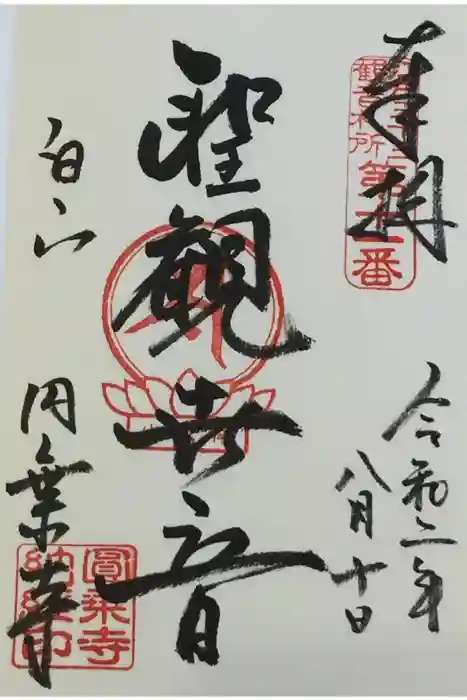 奉拝
観音札所
第十一番
令和二年
八月十日
聖観世音
白山
円乗寺
圓乗寺
納経印